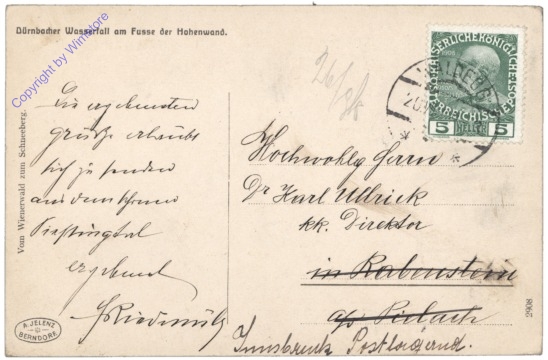 Dürnbacher Wasserfall am Fusse der Hohenwand.
Copyright by Winstore
Vom Wienerwald zum Schneeberg.
Die ergebensten
Grüße erlaubt
sich zu senden
aus dem schönen
Piestingtal
ergebenst
A. JELENZ
BERNDORF
KAISERLICHE KÖNIGLICHE
ÖSTERREICHISCHE POST
5 HELLER 5
Hochwohlg Herrn
Dr Karl Ullrich
kk. Direktor
in Rabenstein
a/d Pielach
Innsbruck Postlagernd.
2908